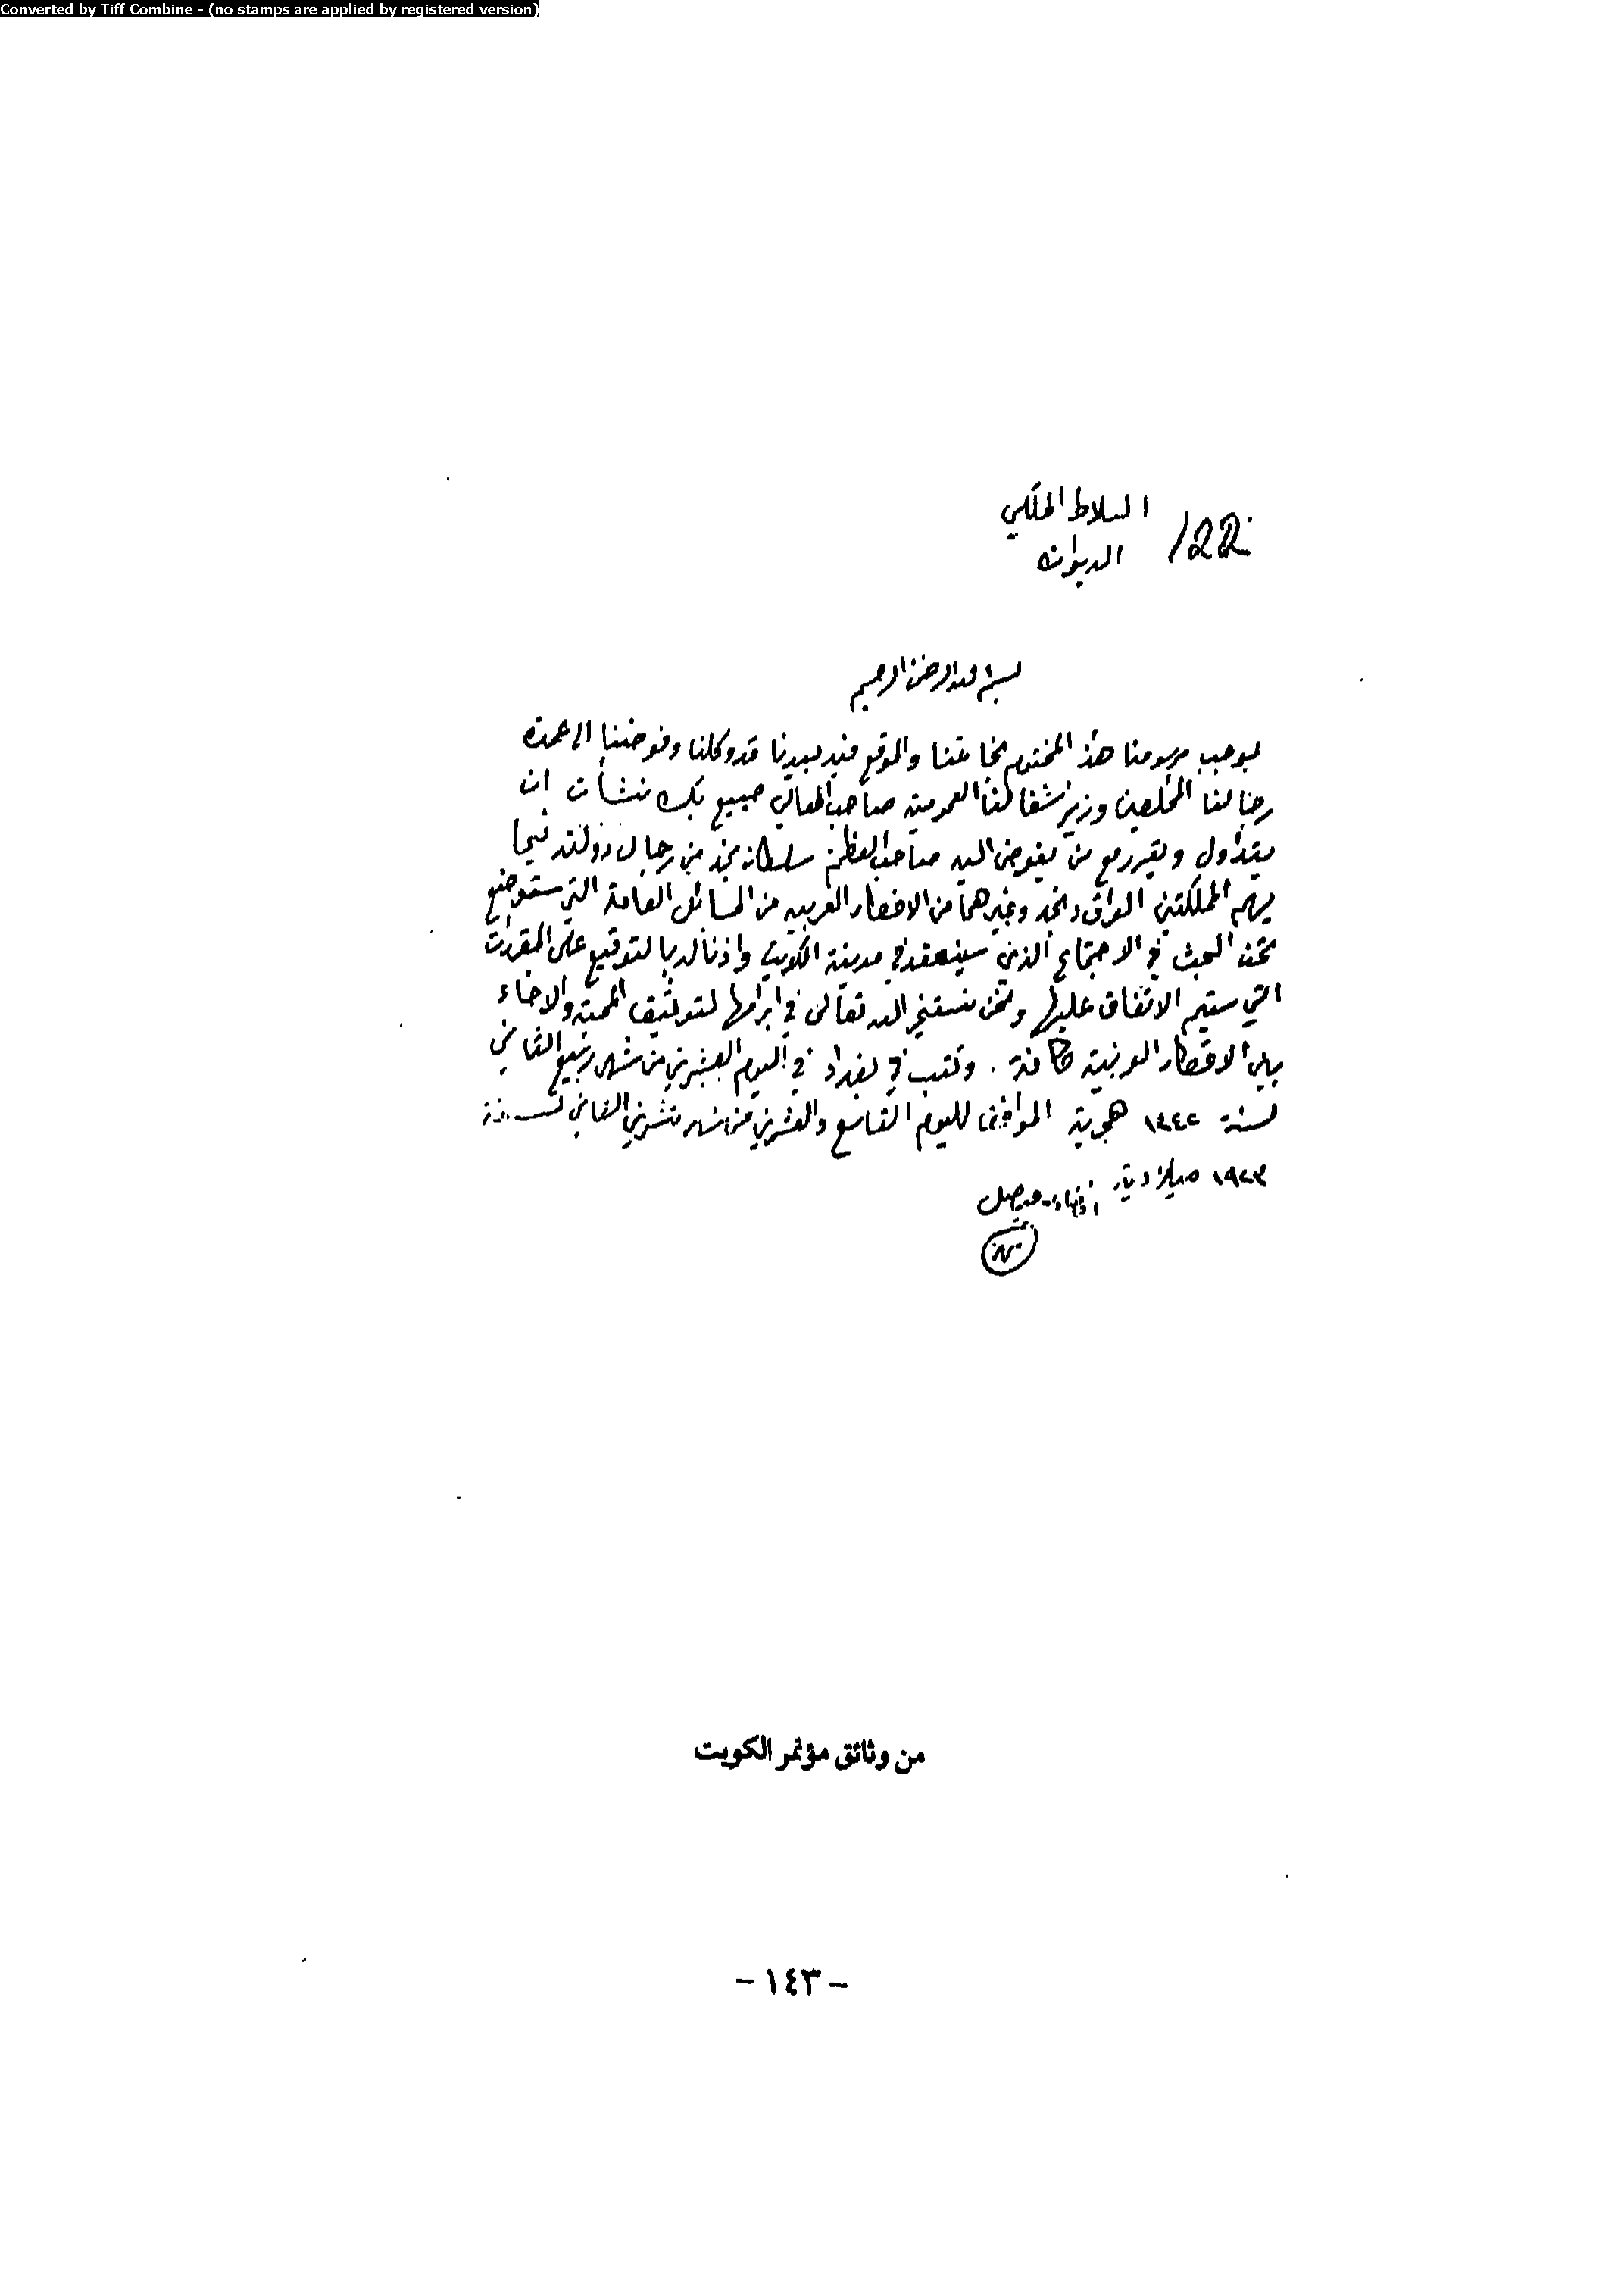 Converted by Tiff Combine - (no stamps are applied by registered version)
البلاط الملكي
/22
الديوان
بسم الله الرحمن الرحيم
بموجب مرسومنا هذا المختوم بخاتمنا والموقع فيه بيدنا قد وكلنا وفوضنا الى عمدة
رجالنا المخلصين وزير اشغالنا العمومية صاحب المعالي صبيح بك نشأت ان
يتداول ويقرر مع من يفوض اليه صاحب العظمة سلطان نجد من رجال دولته فيما
يهم المملكتين العراق ونجد وغيرهما من الاقطار العربية من المسائل العامة التي ستوضع
تحت البحث في الاجتماع الذي سينعقد في مدينة الكويت واذنا له بالتوقيع على المقررات
التي سيتم الاتفاق عليها ونحن نستخير الله تعالى في ابرامها لتوثيق المحبة والاخاء
بين الاقطار العربية كافة . وكتب في بغداد في اليوم العشرين من شهر ربيع الثاني
لسنة ١٣٤٢ هجرية الموافق لليوم التاسع والعشرين من شهر تشرين الثاني لسنة
١٩٢٣ ميلادية فيصل
من وثائق مؤتمر الكويت
- ١٤٣ -